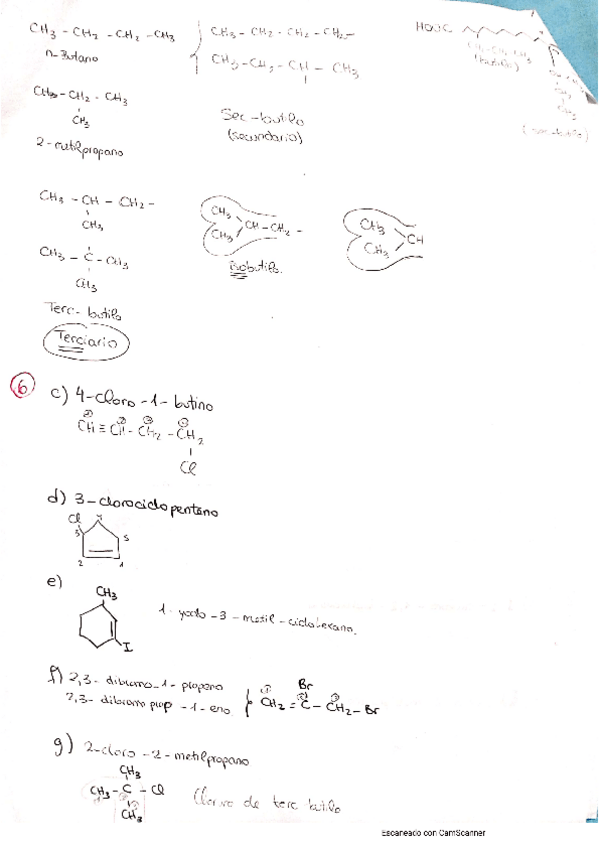 CH₃ - CH₂ - CH₂ - CH₃
n-Butano
CH₃ - CH₂ - CH₂ - CH₂-
CH₃-CH₂ - CH - CH₃
HOOC
(butilo)
(sec-butilo)
CH₃-CH₂ - CH₃
CH₃
2-metilpropano
Sec-butilo
(secundario)
CH₃ - CH - CH₂ -
CH₃
CH₃
CH₃
CH - CH₂ -
Isobutilo.
CH₃
CH₃
CH
CH₃ - C - CH₃
CH₃
Terc-butilo
Terciario
6
c) 4-cloro-1-butino
CH ≡ CH - CH₂ - CH₂
Cl
d) 3-clorociclopenteno
Cl
3 4 5
2 1
e)
CH₃
I
1-yodo-3-metil-ciclohexano.
f) 2,3-dibromo-1-propeno
2,3-dibromo prop-1-eno
Br
CH₂ = C - CH₂ - Br
g) 2-cloro-2-metilpropano
CH₃
CH₃ - C - Cl
CH₃
Cloruro de terc butilo
Escaneado con CamScanner